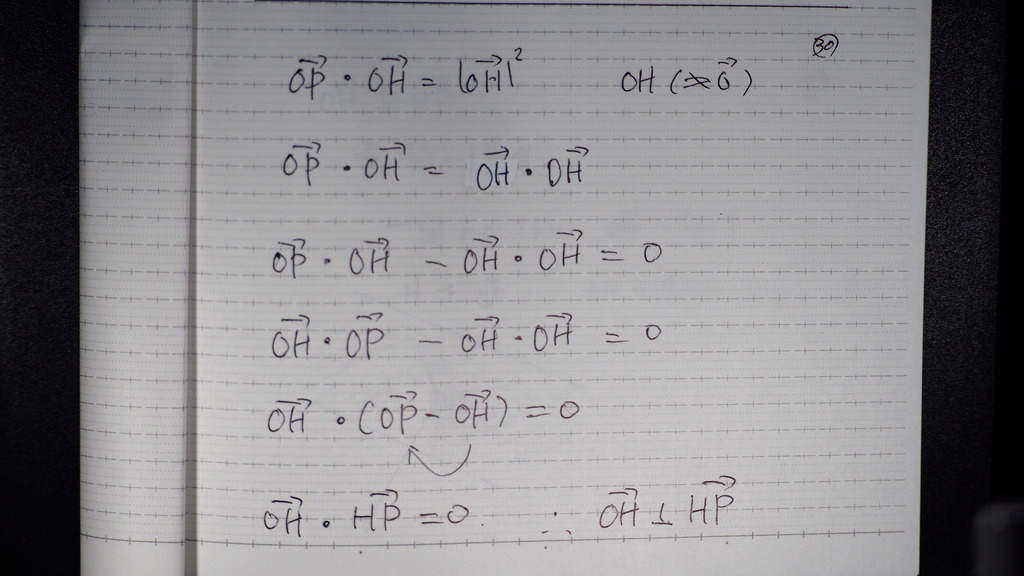 ㉚
$\overrightarrow{OP} \cdot \overrightarrow{OH} = |\overrightarrow{OH}|^2$ OH (≠ $\vec{0}$)
$\overrightarrow{OP} \cdot \overrightarrow{OH} = \overrightarrow{OH} \cdot \overrightarrow{OH}$
$\overrightarrow{OP} \cdot \overrightarrow{OH} - \overrightarrow{OH} \cdot \overrightarrow{OH} = 0$
$\overrightarrow{OH} \cdot \overrightarrow{OP} - \overrightarrow{OH} \cdot \overrightarrow{OH} = 0$
$\overrightarrow{OH} \cdot (\overrightarrow{OP} - \overrightarrow{OH}) = 0$
$\overrightarrow{OH} \cdot \overrightarrow{HP} = 0.$ ∴ $\overrightarrow{OH} \perp \overrightarrow{HP}$